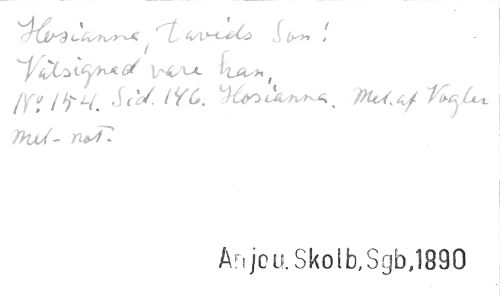 Hosianna, Davids Son!
Välsignad vare han,
No 154. Sid. 146. Hosianna. Mel. af Vogler
mel-not.
Anjou. Skolb, Sgb, 1890